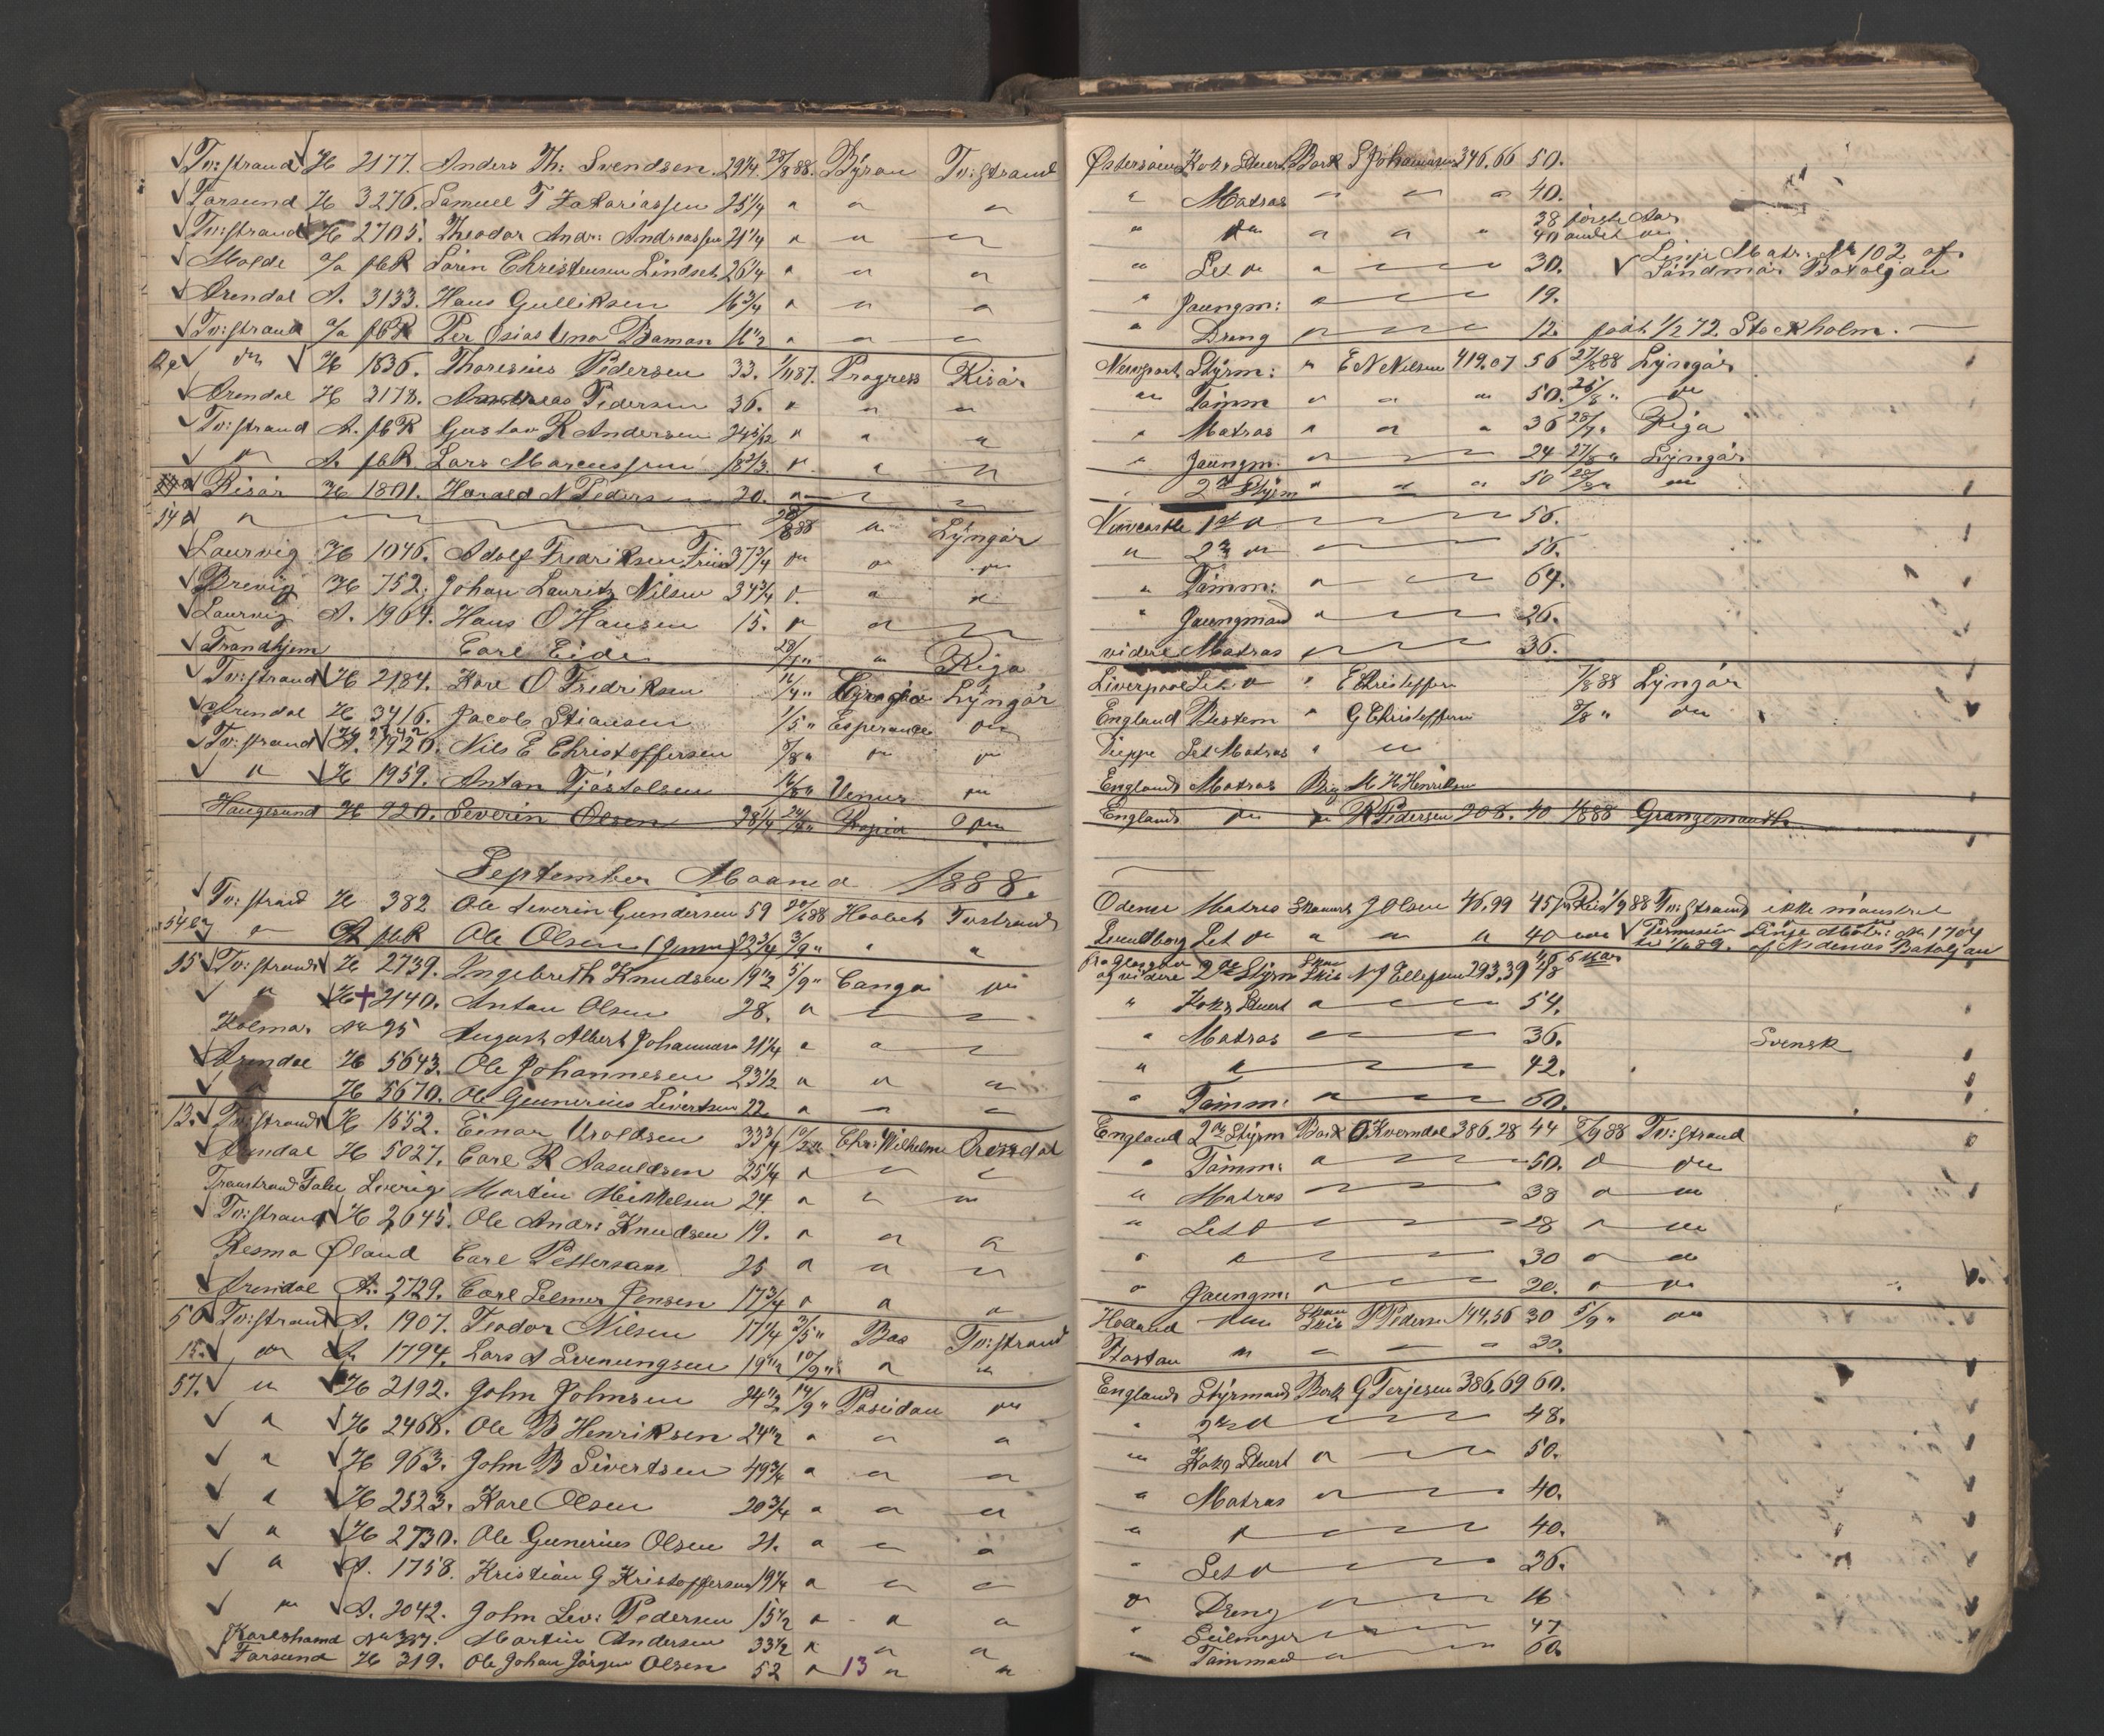 Tv:strand H 2177. Anders Th: Svendsen. 29 1/4 28/8 88. Byron Tv:strand
Farsund H 3276. Samuel T Zakariassen 25 1/4 " " "
Tv:strand H 2705. Theodor Andr: Andreassen 21 1/4 " " "
Molde a/a fbR Sören Christensen Lindset 26 1/4 " " "
Arendal A. 3133. Hans Gulliksen 16 3/4 " " "
Tv:strand a/a fbR Per Osias Uno Boman 16 1/2 " " "
do H 1836. Thoresius Pedersen 33. 1/11 87. Progress Risör
Arendal H 3178. Andreas Pedersen 36. " " "
Tv:strand A. fbR Gustav R Andersen 24 5/12 " " "
" A. fbR. Lars Marcussen 18 2/3. " " "
Risör H 1801. Harald N Peders 20. "
54 " " 28/8 88 " Lyngör
Laurvig H 1046. Adolf Fredriksen Friis 37 3/4 do " do
Brevig H 752. Johan Lauritz Nilsen 34 3/4 " " "
Laurvig A. 1964. Hans O Hansen 15. " "
Trondhjem Carl Eide 28/7 " " Riga
Tv:strand H 2184. Kare O Fredriksen 16/4 " Lyngör
Arendal H 3416. Jacob Stiansen 1/5 " Esperance do
Tv:strand A. 1926. Nils E Christoffersen 7/8 " do do
" H 1959. Antan Tjöstolsen 16/8 " Venus do
Haugesund H 920. Severin Olsen 28 1/4 24/8 "
September Maaned 1888.
Tv:strand H 382 Ole Severin Gundersen 59 20/8 88 Haabet Tvstrand
" A fbR Ole Olsen 22 3/4 3/9 " " "
55 Tv:strand H 2739. Ingebreth Knudsen 19 1/2 5/9 " Canga do
" H+2140. Antan Olsen 28. "
Kolmar No 95 August Albert Johannsen 21 1/4 " "
Arendal H 5643. Ole Johannesen 23 1/2 " " "
" H 5670. Ole Gunerius Sivertsen 22 " " "
13. Tv:strand H 1552. Einar Uroldsen 33 3/4 Chr: Wilhelm Arendal
Arendal H 5027. Carl R Aasuldsen 25 1/4 "
Martin Mikkelsen 24. " " "
Tv:strand H 2645. Ole Andr: Knudsen 19. " " "
Øland Carl Pettersson 25 " " "
Arendal A. 2729. Carl Selmer Jensen 17 3/4 " " "
56 Tv:strand A. 1907. Teodor Nilsen 17 1/4 3/5 " Bas Tv:strand
15. do A 1794. Lars A Svenungsen 19 1/2 10/9 " " "
57. " H 2192. John Johnsen 24 1/2 14/9 " Poseidon do
" H 2468. Ole B Henriksen 24 1/2 " " "
" H 963. John B Sivertsen 49 3/4 " " "
" H 2523. Kare Olsen 20 3/4 " " "
" H 2730. Ole Gunerius Olsen 21. " " "
" A. 1758. Kristian G Kristoffersen 19 1/4 " " "
" A. 2042. John Sev: Pedersen 15 1/2 " " "
Karlshamd Martin Andersen 33 1/2 " " "
Farsund H 319. Ole Johan Jörgen Olsen 52 " 13 " "
Østersöen Kok & Stuert Bark S Johannsen 346.66 50.
" Matros " " " 40.
" do " " " 38 förste Aar
40 andet do
" Let do " 30. Linje Matr: No 102 af Söndmör Batalgon
" Jaungm: " 19.
" Dreng " 12. födt 1/2 72. Stockholm.
Newport Styrm: " E N Nilsen 419.07 56 27/8 88 Lyngör
" Tömm " " " 50. 25/8 " do
" Matros " " " 36 28/7 " Riga
" Jaungm. " 24 27/8 " Lyngör
" 2n Styrm " " " 50 28/8 " do
Newcastle 1st " 56.
" 2n do 56.
" Tömm: " 64.
" Jaungmand " 26.
videre Matros " 36.
Liverpool Let " " E Christoffers 7/8 88 Lyngör
England Bestem " G Christoffersen 7/8 " do
Dieppe Let Matros " "
England Matros Brig M H Henriksen
England do " R Pedersen 208. 40 1/8 88 Grangemouth
Odense Matros Skonnert J Olsen 46,99 45 1/9 88 Tv:strand ikke mönstret
Svendborg Let do " " " 40 Permission til 1/4 89. Linje Matr: No 1704 af Nidenes Batalgon
fra Glasgow og videre 2de Styrm Skon Skib N J Ellefsen 293,39 48
" Kok & Stuert " 54.
" Matros " 36. Svensk
" " 42.
" Tömm: " 60.
England 2n Styrm Bark O Kverndal 386,28 44 7/9 88 Tv:strand
" Tömm: " 50. " do
" Matros 38 " "
" Let " 28 " do
" " 30 " "
" Jaungm: " 20. " do
Holland do Skon Skib P Pedersen 144,56 30 5/9 " do
Rostau " " " " 30.
England Styrmand Bark G Terjesen 386,69 60.
" 2n " 48.
" Kok & Stuert " 50.
" Matros " 40.
" " 40.
" Let " 26.
do Dreng 16
" Seilmager 47
" Tömmand 60.